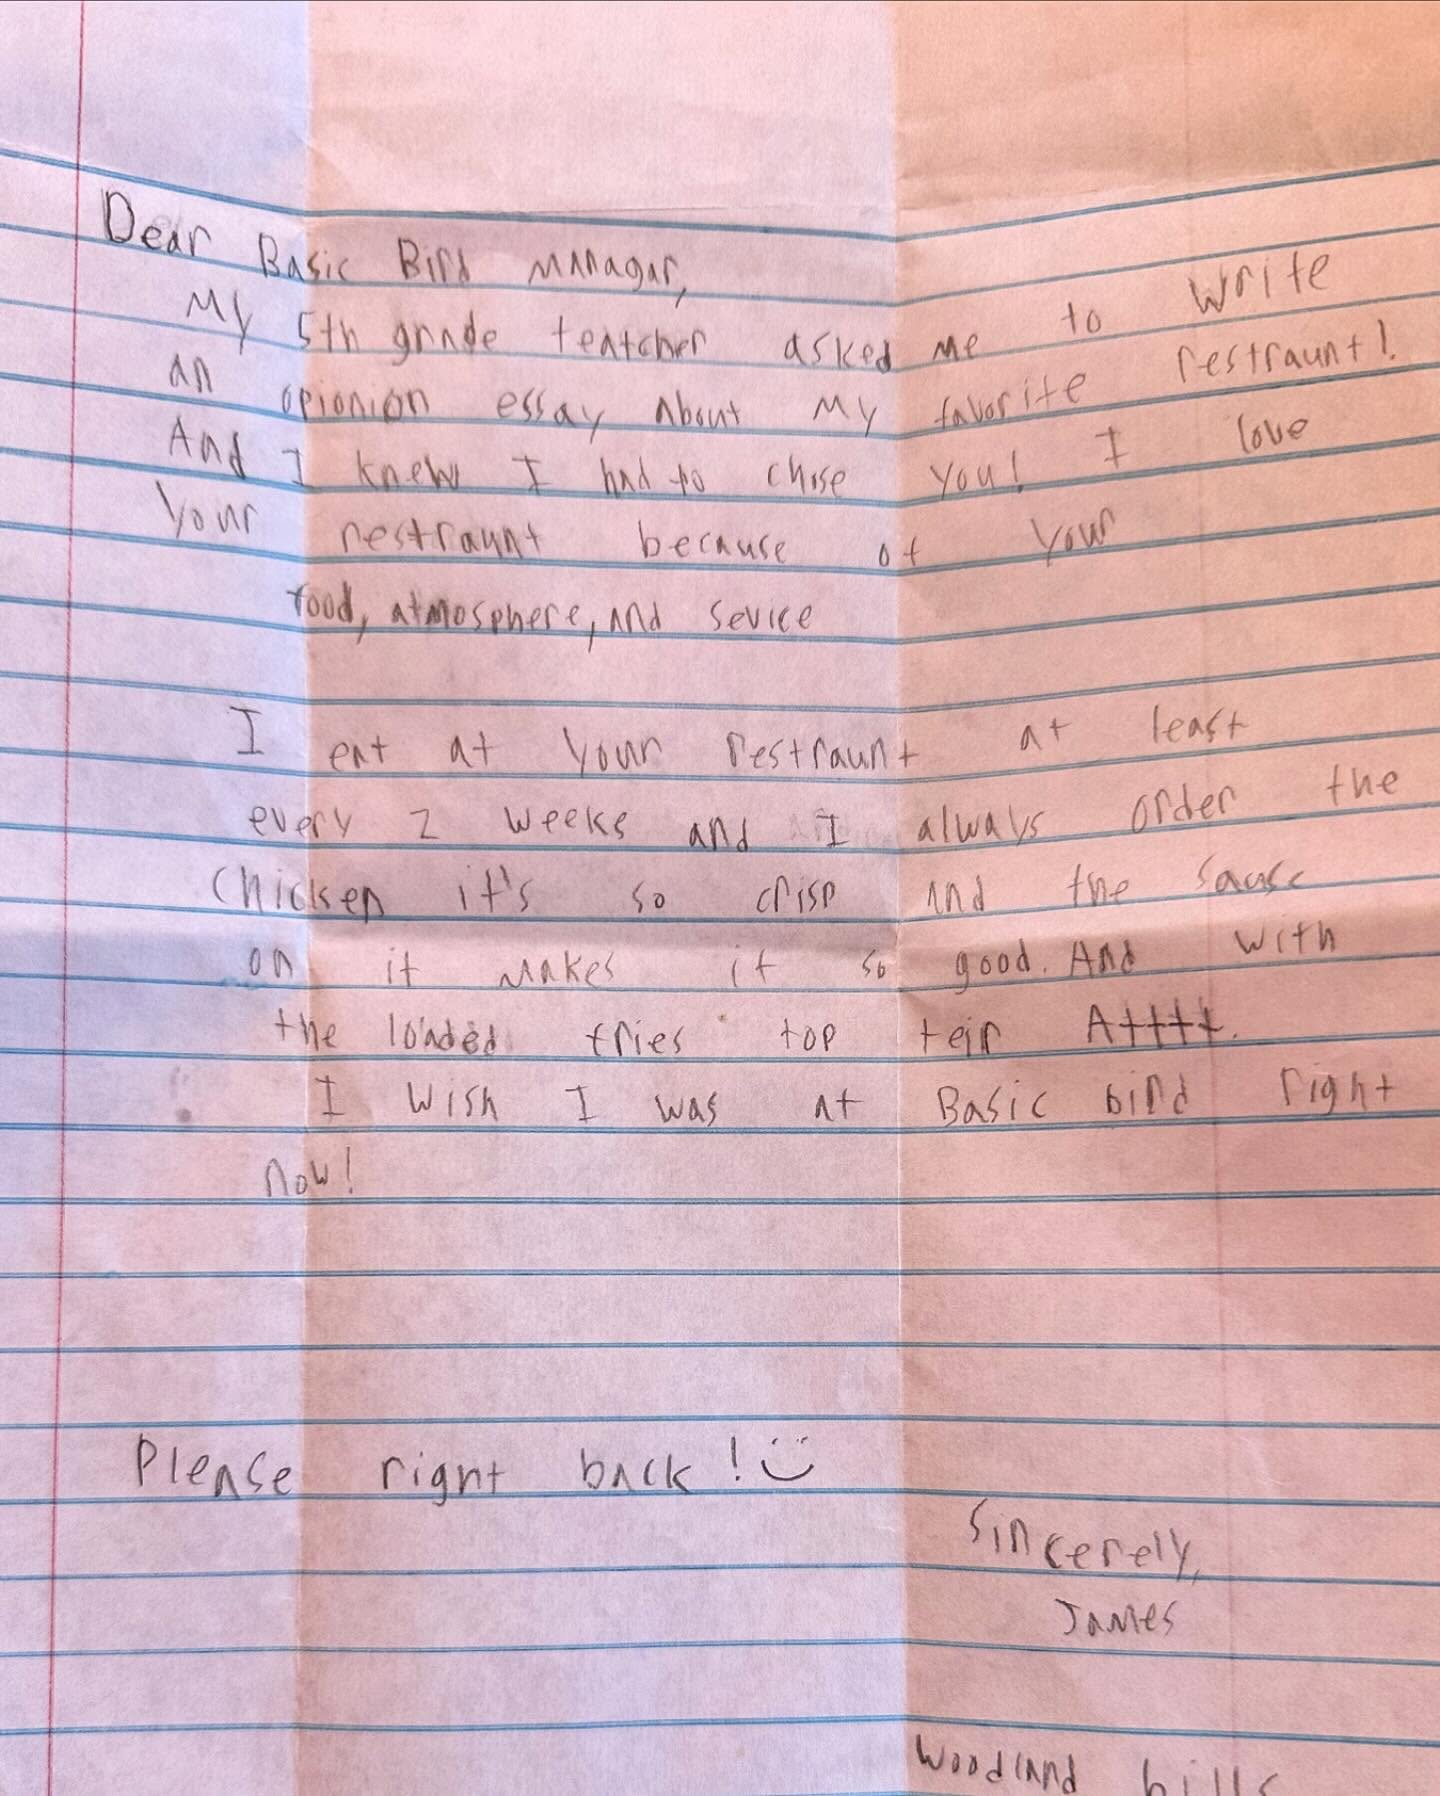 Dear Basic Bird managar,
My 5th grade teatcher asked me to write
an opionion essay about my favorite restraunt!
And I knew I had to chose you! I love
your restraunt because of your
food, atmosphere, and sevice
I eat at your restraunt at least
every 2 weeks and I always order the
Chicken it's so crisp and the sause
on it makes it so good. And with
the loaded fries top teir Atttt.
I wish I was at Basic bird right
now!
Please right back! :)
Sincerely,
James
Woodland hills